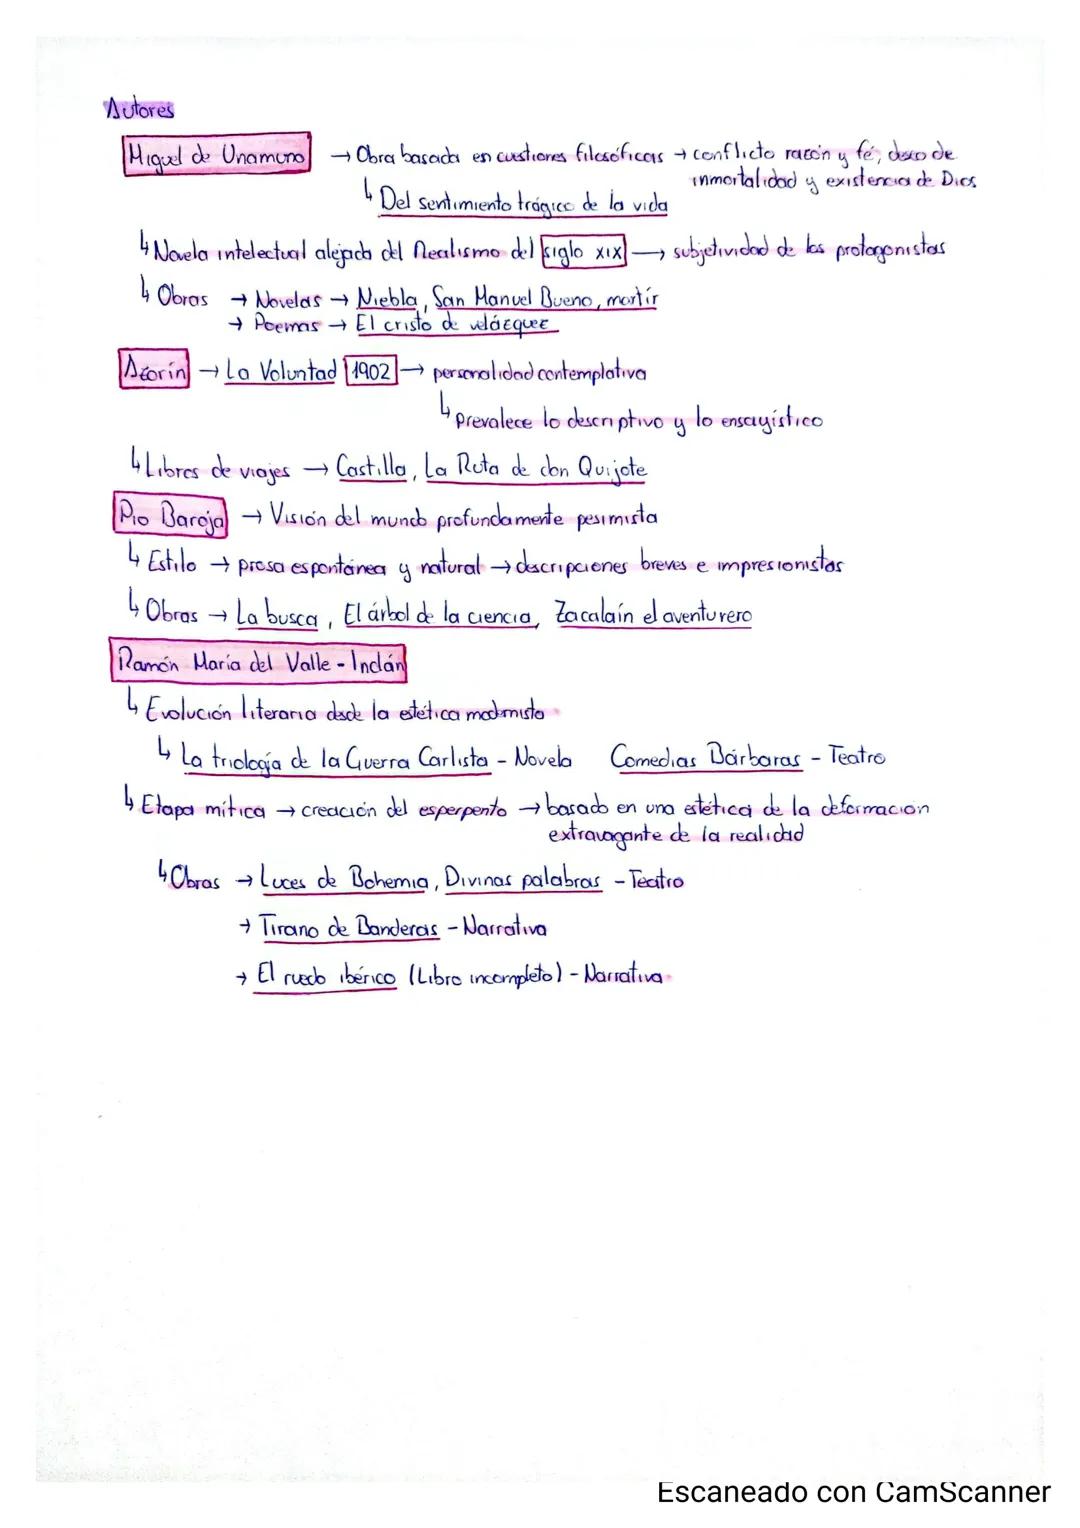 Autores
Miguel de Unamuno → Obra basada en cuestiones filosóficas → conflicto razón y fé, deseo de
inmortalidad y existencia de Dios
↳ Del sentimiento trágico de la vida
↳ Novela intelectual alejada del Realismo del siglo XIX → subjetividad de los protagonistas
↳ Obras → Novelas → Niebla, San Manuel Bueno, mártir
→ Poemas → El cristo de velázquez
Azorín → La Voluntad 1902 → personalidad contemplativa
↳ prevalece lo descriptivo y lo ensayístico
↳ Libros de viajes → Castilla, La Ruta de don Quijote
Pío Baroja → Visión del mundo profundamente pesimista
↳ Estilo → prosa espontánea y natural → descripciones breves e impresionistas
↳ Obras → La busca, El árbol de la ciencia, Zacalaín el aventurero
Ramón María del Valle - Inclán
↳ Evolución literaria desde la estética modernista
↳ La triología de la Guerra Carlista - Novela Comedias Bárbaras - Teatro
↳ Etapa mítica → creación del esperpento → basado en una estética de la deformacion
extravagante de la realidad
↳ Obras → Luces de Bohemia, Divinas palabras - Teatro
→ Tirano de Banderas - Narrativa
→ El ruedo ibérico (Libro incompleto) - Narrativa
Escaneado con CamScanner